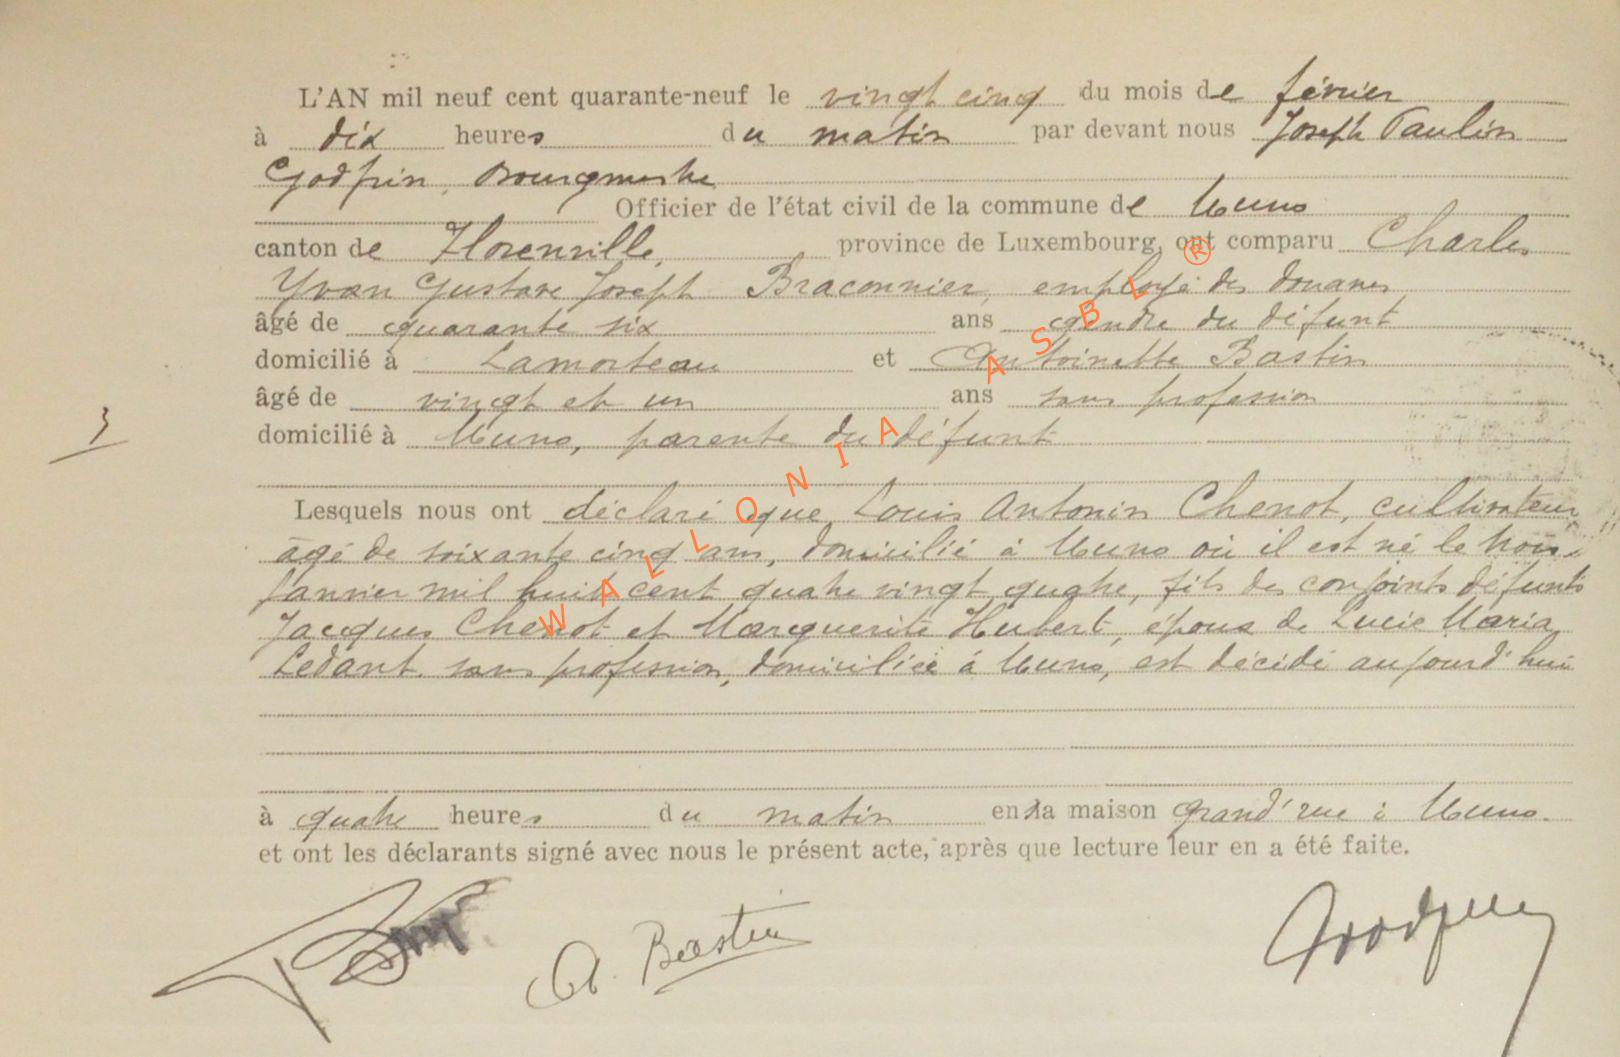 L'AN mil neuf cent quarante-neuf le vingt cinq du mois de février
à dix heures du matin par devant nous Joseph Paulin
Godfrin, Bourgmestre
Officier de l'état civil de la commune de Muno
canton de Florenville, province de Luxembourg, ont comparu Charles
Yvan Gustave Joseph Braconnier, employé des douanes
âgé de quarante six ans gendre du défunt
domicilié à Lamorteau et Antoinette Bastin
âgé de vingt et un ans sans profession
domicilié à Muno, parente du défunt
3
Lesquels nous ont déclaré que Louis Antonin Chenot, cultivateur
âgé de soixante cinq ans, domicilié à Muno où il est né le trois
Janvier mil huit cent quatre vingt quatre, fils des conjoints défunts
Jacques Chenot et Marguerite Hubert, époux de Lucie Maria
Ledant sans profession, domiciliée à Muno, est décédé aujourd'hui
à quatre heures du matin en sa maison grand'rue à Muno.
et ont les déclarants signé avec nous le présent acte, après que lecture leur en a été faite.
A. Bastin Godfrin
WALLONIA ASBL ®